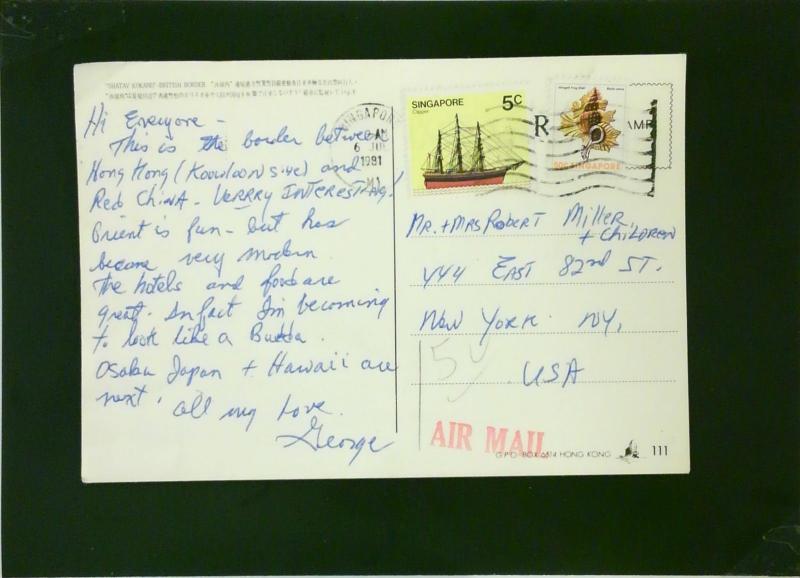 "SHATAV KOKANG"-BRITISH BORDER
Hi Everyone -
This is the border between
Hong Hong (Koowloon side) and
Red China - VERRRY INTERESTING!
Orient is fun - but has
become very modern.
The hotels and food are
great. In fact I'm becoming
to look like a Budda.
Osaka Japan + Hawaii are
next.
All my Love.
George
SINGAPORE
AM
6 JUL
1981
SINGAPORE 5c
Clipper
50c SINGAPORE
Mr. + Mrs Robert Miller
+ Children
444 East 82nd St.
New York. NY,
USA
54
AIR MAIL
G.P.O. BOX 6514 HONG KONG
111